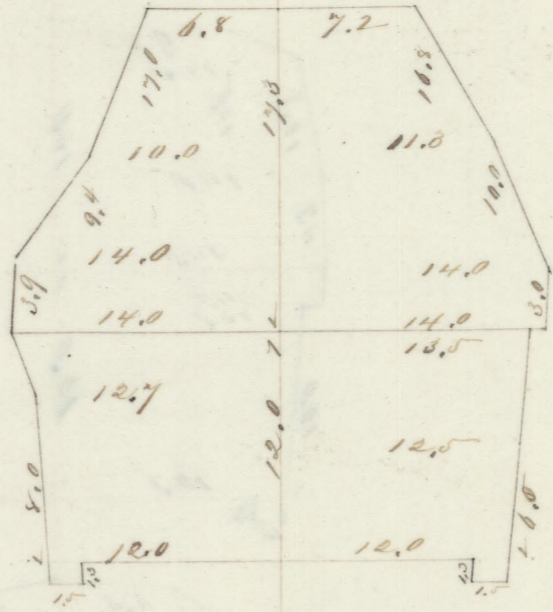 6.8 7.2
17.0 17.3 16.8
10.0 11.3
9.4 10.0
14.0 14.0
3.9 3.0
14.0 14.0
13.5
12.7
12.0
12.5
8.0 6.5
12.0 12.0
1.3 1.3
1.5 1.5